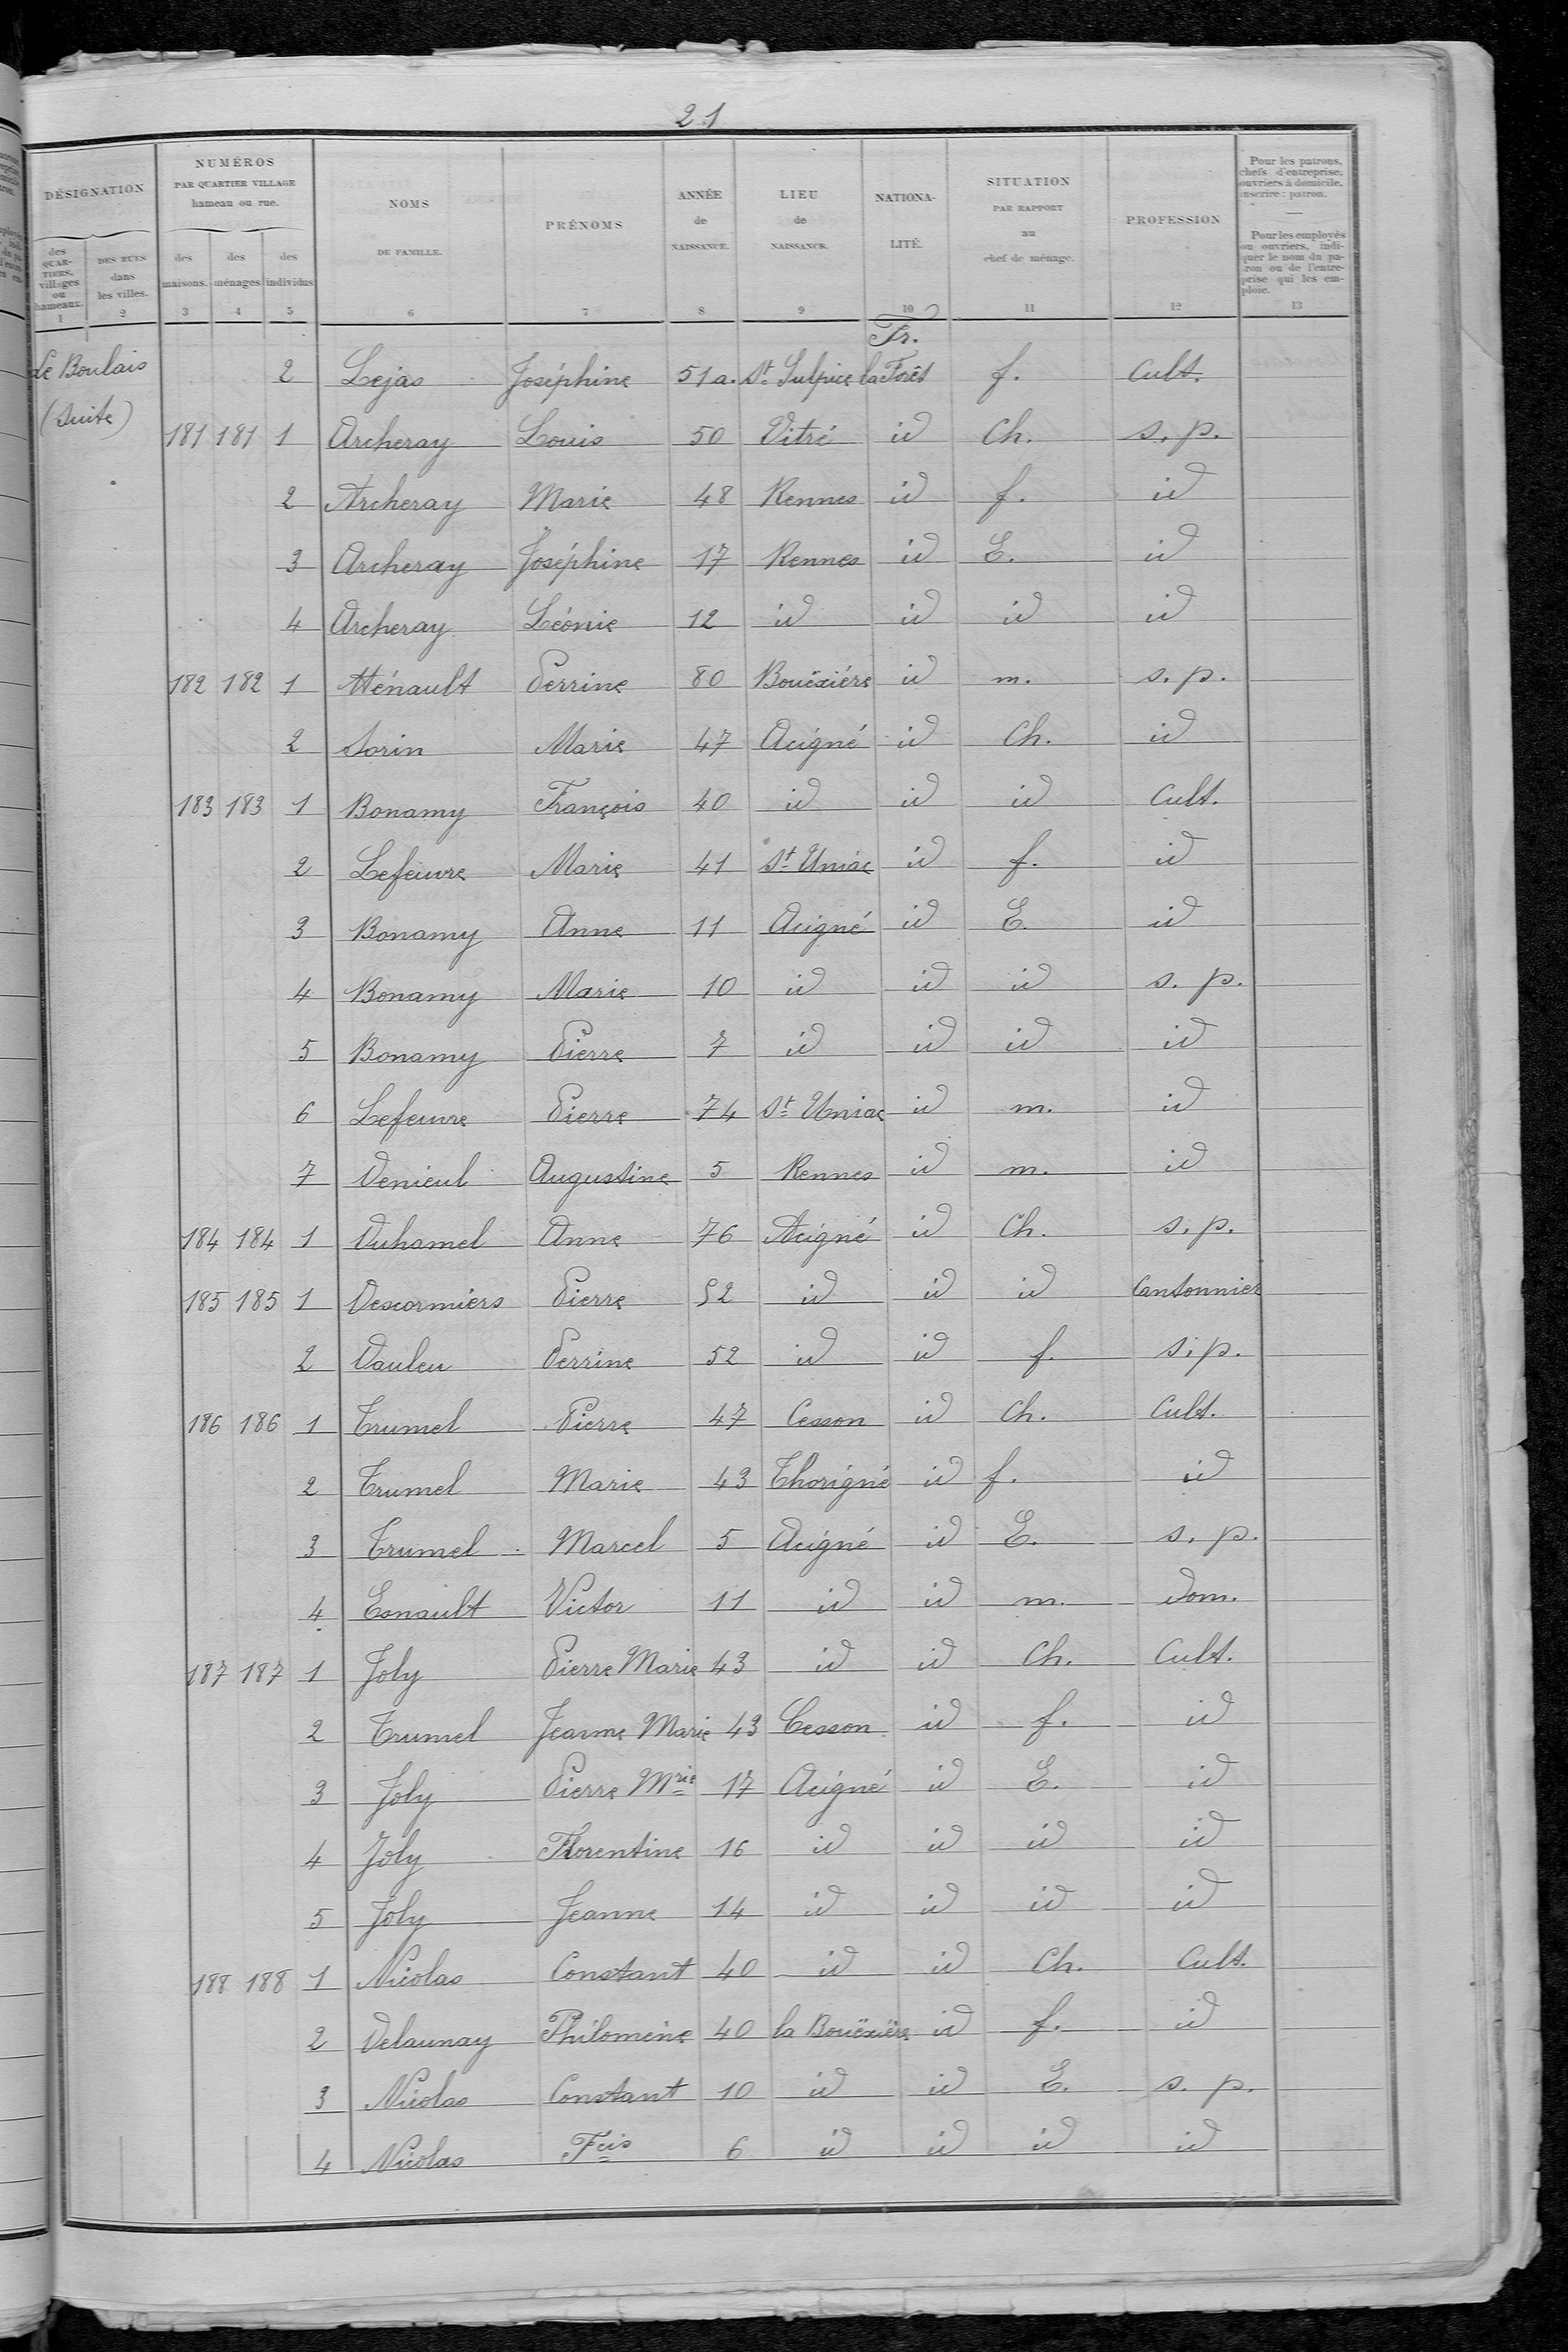 21
DÉSIGNATION
NUMÉROS
PAR QUARTIER VILLAGE
hameau ou rue.
des QUARTIERS, villages ou hameaux. 1
DES RUES dans les villes. 2
des maisons. 3
des ménages 4
des individus 5
NOMS DE FAMILLE. 6
PRÉNOMS 7
ANNÉE de NAISSANCE. 8
LIEU de NAISSANCE. 9
NATIONA-LITÉ. 10
SITUATION PAR RAPPORT au chef de ménage. 11
PROFESSION 12
Pour les patrons, chefs d'entreprise, ouvriers à domicile, inscrire : patron.
Pour les employés ou ouvriers, indiquer le nom du patron ou de l'entreprise qui les emploie. 13
Fr.
Le Boulais 2 Lejas Joséphine 51 a. St Sulpice la Forêt f. Cult.
(Suite)
181 181 1 Archeray Louis 50 Vitré id Ch. s. p.
2 Archeray Marie 48 Rennes id f. id
3 Archeray Joséphine 17 Rennes id E. id
4 Archeray Léonie 12 id id id id
182 182 1 Hénault Perrine 80 Bouëxiére id m. s. p.
2 Sorin Marie 47 Acigné id Ch. id
183 183 1 Bonamy François 40 id id id Cult.
2 Lefeuvre Marie 41 St Uniac id f. id
3 Bonamy Anne 11 Acigné id E. id
4 Bonamy Marie 10 id id id s. p.
5 Bonamy Pierre 7 id id id id
6 Lefeuvre Pierre 74 St Uniac id m. id
7 Denieul Augustine 5 Rennes id m. id
184 184 1 Duhamel Anne 76 Acigné id Ch. s. p.
185 185 1 Descormiers Pierre 52 id id id Cantonnier
2 Dauleu Perrine 52 id id f. s. p.
186 186 1 Trumel Pierre 47 Cesson id Ch. Cult.
2 Trumel Marie 43 Thorigné id f. id
3 Trumel Marcel 5 Acigné id E. s. p.
4 Esnault Victor 11 id id m. dom.
187 187 1 Joly Pierre Marie 43 id id Ch. Cult.
2 Trumel Jeanne Marie 43 Cesson id f. id
3 Joly Pierre Mrie 17 Acigné id E. id
4 Joly Florentine 16 id id id id
5 Joly Jeanne 14 id id id id
188 188 1 Nicolas Constant 40 id id Ch. Cult.
2 Delaunay Philomène 40 la Bouëxière id f. id
3 Nicolas Constant 10 id id E. s. p.
4 Nicolas Fcis 6 id id id id